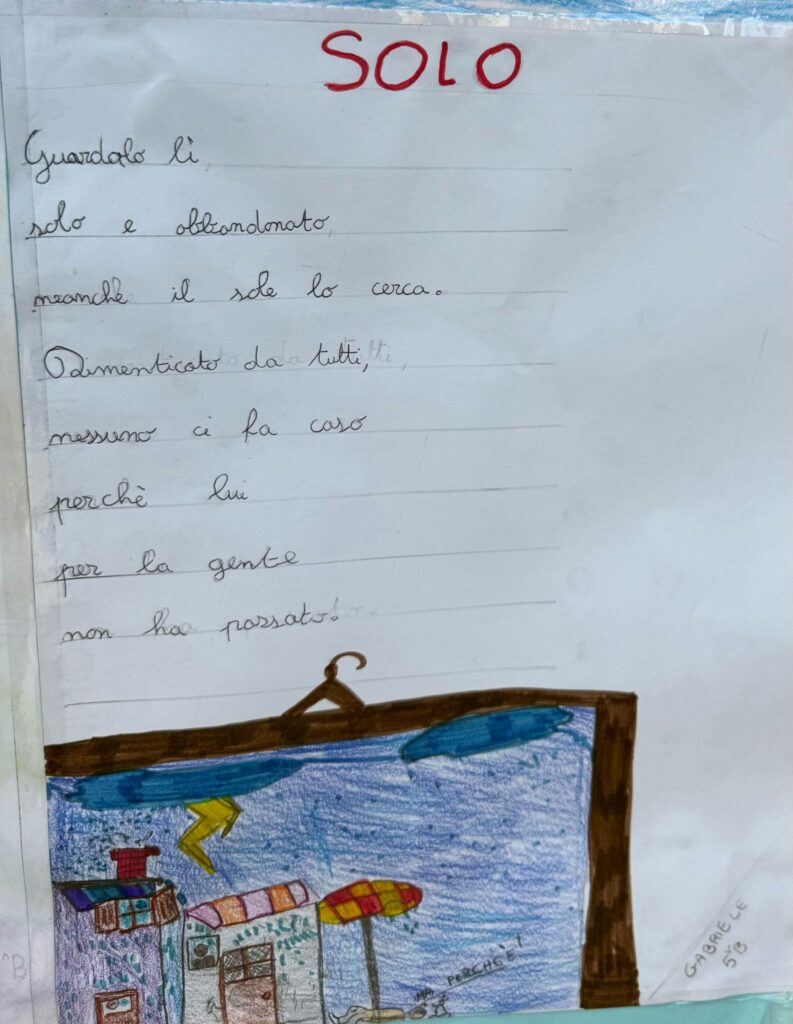 SOLO
Guardalo lì,
solo e abbandonato,
neanche il sole lo cerca.
Dimenticato da tutti,
nessuno ci fa caso
perchè lui
per la gente
non ha passato.
MA PERCHÈ!
GABRIELE
5ªB